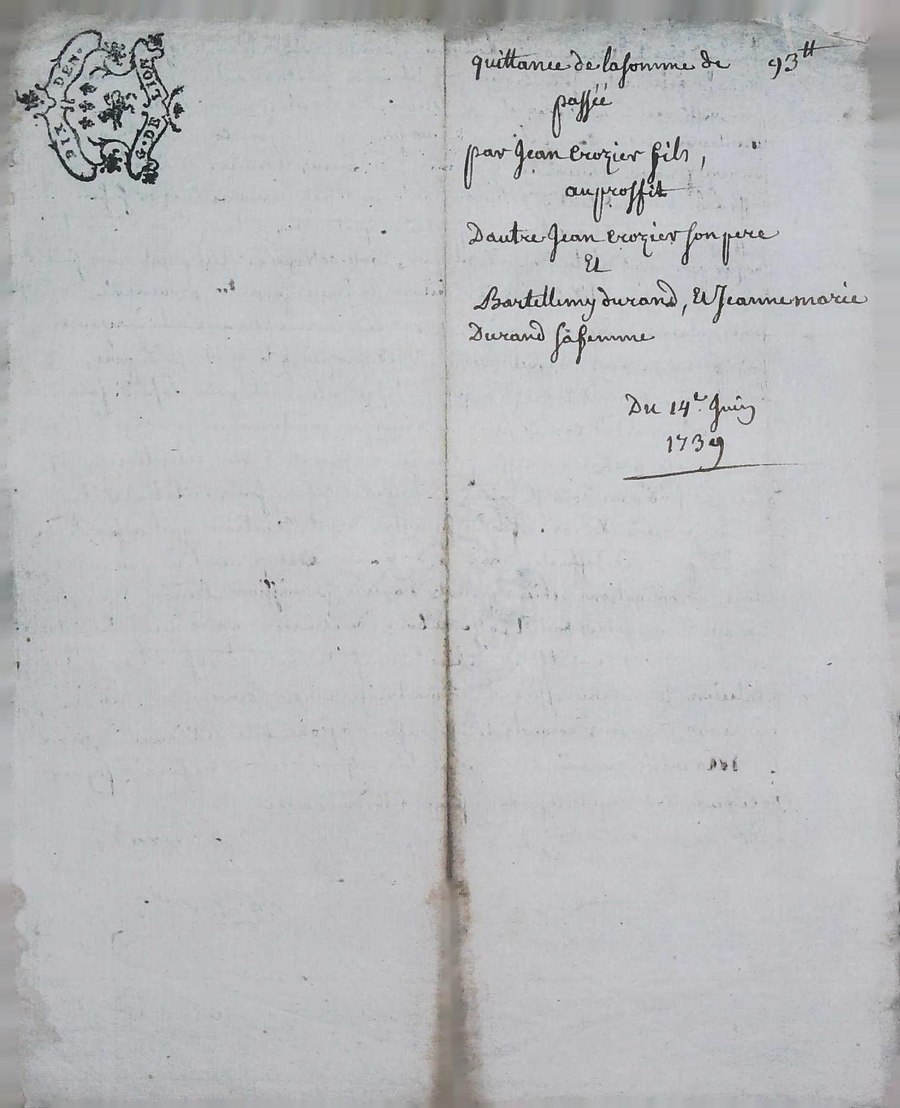 SIX DEN.
G. DE LION
quittance de la somme de 93tt
passée
par Jean Crozier fils,
au proffit
Dautre Jean Crozier son pere
Et
Bartellemy durand, et Jeanne marie
Durand sa femme
Du 14e Juin
1739